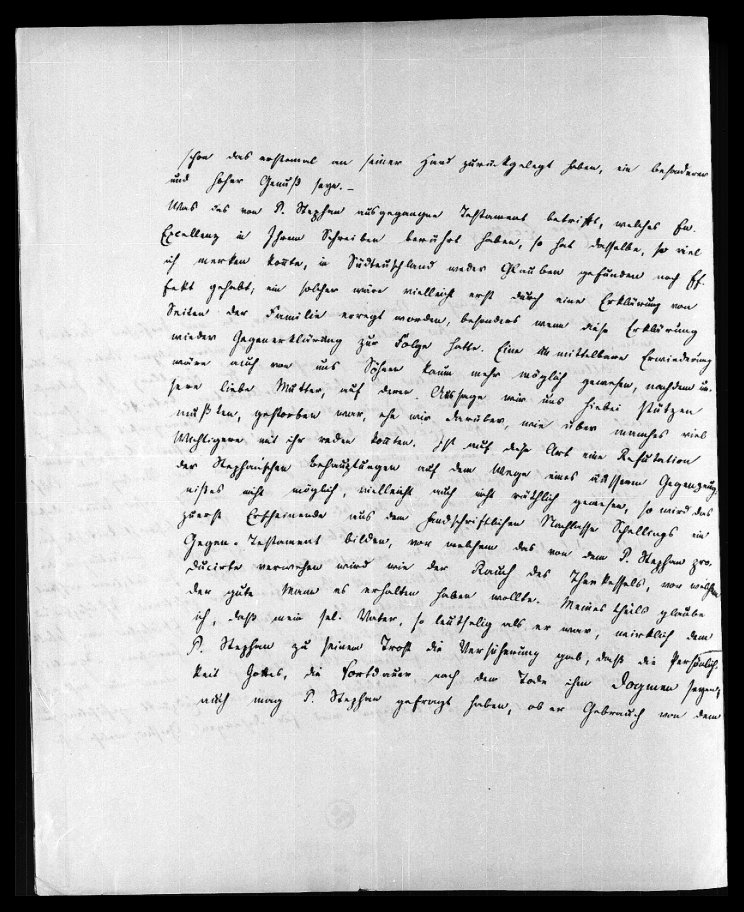 schon das erstemal an seiner Hand zurückgelegt haben, ein besonderer
und hoher Genuß seyn. –
Was das von P. Stephan ausgegangene Testament betrifft, welches Ew.
Excellenz in Ihrem Schreiben berührt haben, so hat dasselbe, so viel
ich merken konnte, in Südteutschland weder Glauben gefunden noch Ef-
fekt gehabt; ein solcher wäre vielleicht erst durch eine Erklärung von
Seiten der Familie erregt worden, besonders wenn diese Erklärung
wieder Gegenerklärung zur Folge hatte. Eine unmittelbare Erwiederung
wäre auch von uns Söhnen kaum mehr möglich gewesen, nachdem un-
sere liebe Mutter, auf deren Aussage wir uns hiebei stützen
mußten, gestorben war, ehe wir darüber, wie über manches viel
Wichtigere mit ihr reden konnten. Ist auf diese Art eine Refutation
der Stephan'schen Behauptungen auf dem Wege eines äusseren Gegenzeug-
nißes nicht möglich, vielleicht auch nicht räthlich gewesen, so wird das
zuerst Erscheinende aus dem handschriftlichen Nachlasse Schellings ein
Gegen-Testament bilden, vor welchem das von dem P. Stephan pro-
ducirte verwehen wird wie der Rauch des Theekessels, vor welchem
der gute Mann es erhalten haben wollte. Meines theils glaube
ich, daß mein sel. Vater, so leutselig als er war, wirklich dem
P. Stephan zu seinem Trost die Versicherung gab, daß die Persönlich-
keit Gottes, die Fortdauer nach dem Tode ihm Dogmen seyen;
auch mag P. Stephan gefragt haben, ob er Gebrauch von dem